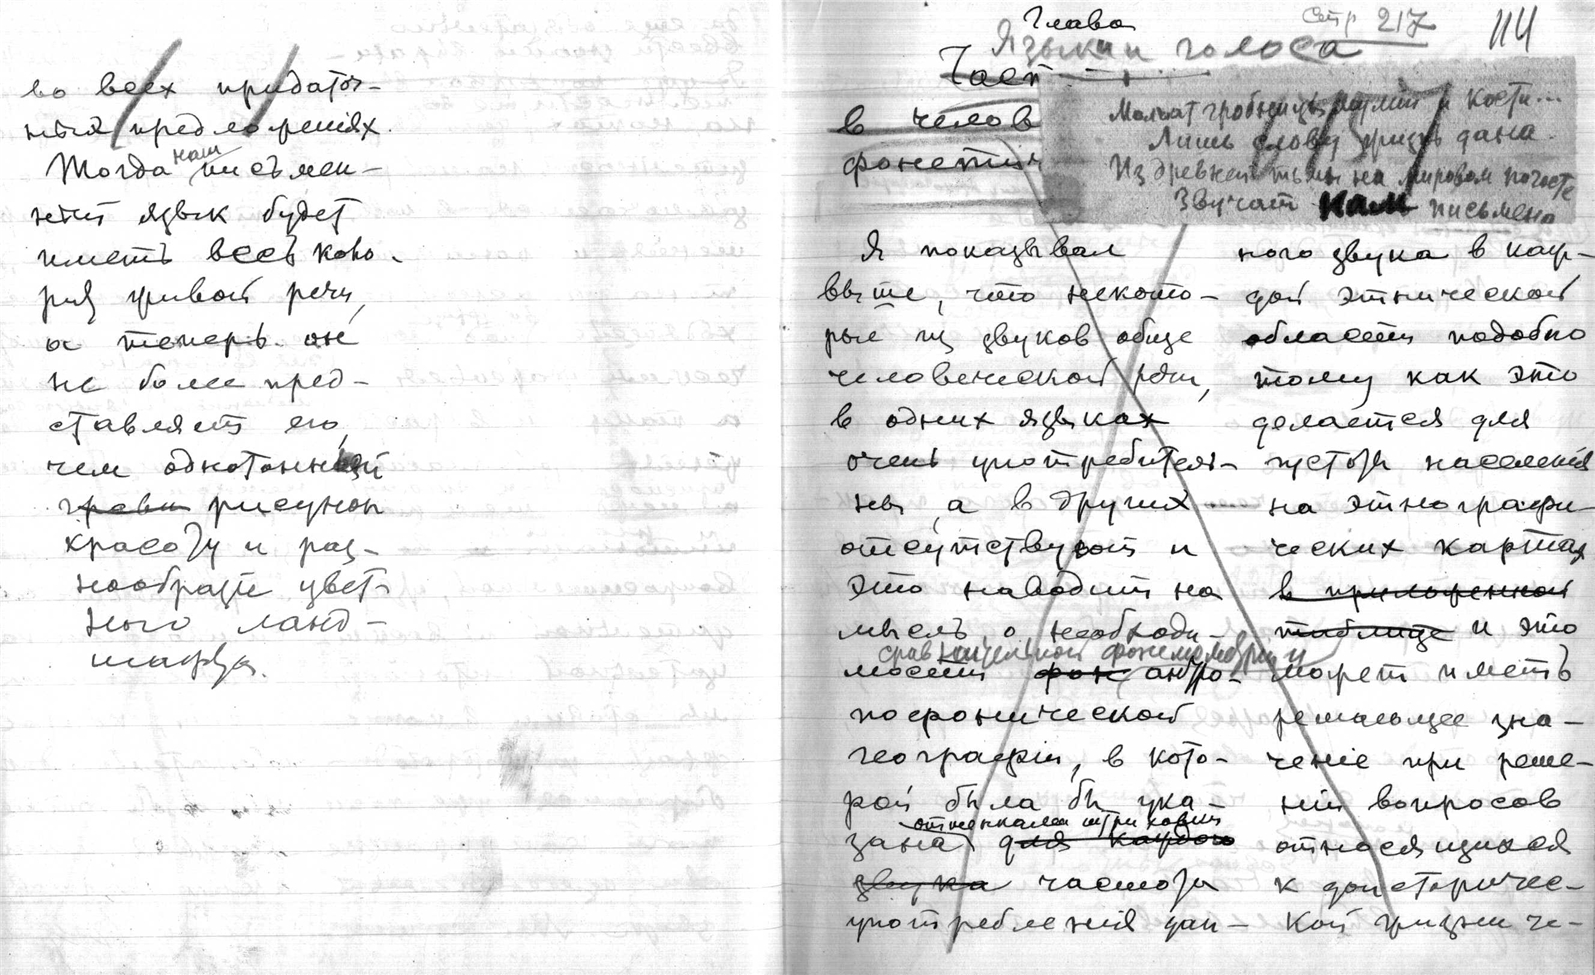 во всех придаточ-
ных предложениях.
Тогда наш письмен-
ный язык будет
иметь весь коло-
рит живой речи,
а теперь он
не более пред-
ставляет его,
чем однотонный
рисунок
красоту и раз-
нообразие цвет-
ного ланд-
шафта.
Глава
Стр 217
114
Языки и голоса
Част
в челов
фонетич
Молчат гробницы, мумии и кости...
Лишь слову жизнь дана.
Из древней тьмы на мировом погосте
Звучат нам письмена
Я показывал
выше, что некото-
рые из звуков обще
человеческой речи,
в одних языках
очень употребитель-
ны, а в других
отсутствуют и
это наводит на
мысль о необходи-
сравнительной фонемометрии и
мости фон антро-
пофонической
географии, в кото-
рой была бы ука-
оттенками штриховки
зана для каждого
звука частота
употребления дан-
ного звука в каж-
дой этнической
области подобно
тому как это
делается для
густоты населения
на этнографи
ческих картах
в приложенной
таблице и это
может иметь
решающее зна-
чение при реше-
нии вопросов
относящихся
к доисториче-
кой жизни че-